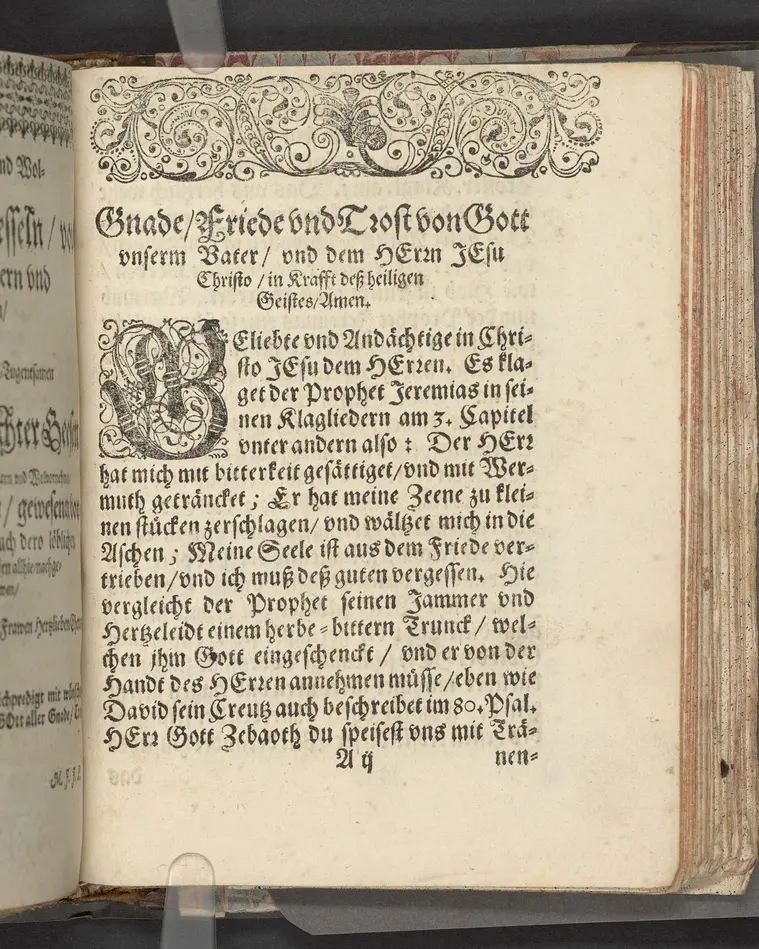 nd Wol-
esseln /
ern vnd
/Tugentsamen
/ gewesenen
uch dero löblichen
Frawen Hertzlieben
chpredigt mit
GOtt aller Gnade/
M. J. J.
Gnade/Friede vnd Trost von Gott
vnserm Vater/ vnd dem HErrn JEsu
Christo / in Krafft deß heiligen
Geistes/Amen.
GEliebte vnd Andächtige in Chri-
sto JEsu dem HErren. Es kla-
get der Prophet Jeremias in sei-
nen Klagliedern am 3. Capitel
vnter andern also : Der HErr
hat mich mit bitterkeit gesättiget/vnd mit Wer-
muth geträncket ; Er hat meine Zeene zu klei-
nen stücken zerschlagen/ vnd wältzet mich in die
Aschen ; Meine Seele ist aus dem Friede ver-
trieben/vnd ich muß deß guten vergessen. Hie
vergleicht der Prophet seinen Jammer vnd
Hertzeleidt einem herbe-bittern Trunck / wel-
chen jhm Gott eingeschenckt / vnd er von der
Handt des HErren annehmen müsse/eben wie
David sein Creutz auch beschreibet im 80. Psal.
HErr Gott Zebaoth du speisest vns mit Trä-
A ij nen-